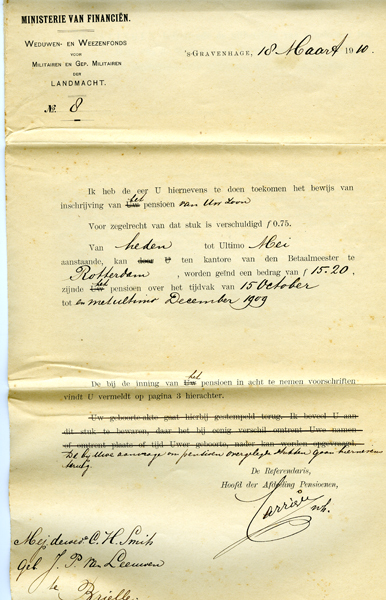 MINISTERIE VAN FINANCIËN.
WEDUWEN- EN WEEZENFONDS
VOOR
MILITAIREN EN GEP. MILITAIREN
DER
LANDMACHT.
№ 8
'S-GRAVENHAGE, 18 Maart 1910.
Ik heb de eer U hiernevens te doen toekomen het bewijs van
inschrijving van Uw het pensioen van Uw zoon
Voor zegelrecht van dat stuk is verschuldigd f 0.75.
Van heden tot Ultimo Mei
aanstaande, kan door U ten kantore van den Betaalmeester te
Rotterdam, worden geïnd een bedrag van f 15.20,
zijnde Uw het pensioen over het tijdvak van 15 October
tot en met ultimo December 1909
De bij de inning van Uw het pensioen in acht te nemen voorschriften
vindt U vermeld op pagina 3 hierachter.
Uw geboorte-akte gaat hierbij gestempeld terug. Ik beveel U aan
dit stuk te bewaren, daar het bij eenig verschil omtrent Uwe namen
of omtrent plaats of tijd Uwer geboorte, nader kan worden opgevraagd.
De bij Uwe aanvrage om pensioen overgelegde stukken gaan hiernevens
terug.
De Referendaris,
Hoofd der Afdeeling Pensioenen,
Mej. de wed. C. H. Smith
geb J. P. van Leeuwen
te Brielle